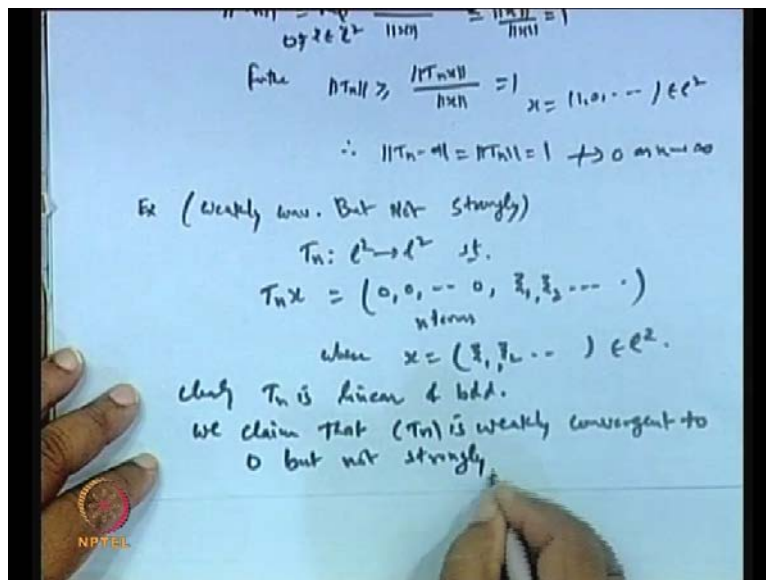 0≠x∈ℓ² ||x|| ≤ ||x||/||x|| = 1
Further ||Tn|| ≥ ||Tnx||/||x|| = 1 x = (1,0,---) ∈ ℓ²
∴ ||Tn-0|| = ||Tn|| = 1 ↛ 0 as n→∞
Ex (Weakly conv. But Not Strongly)
Tn: ℓ²→ℓ² st.
Tnx = (0,0,-- 0, ξ1, ξ2 ---- )
n terms
where x = (ξ1, ξ2 -- ) ∈ ℓ².
Clearly Tn is linear & bdd.
We claim that (Tn) is weakly convergent to
0 but not strongly
NPTEL